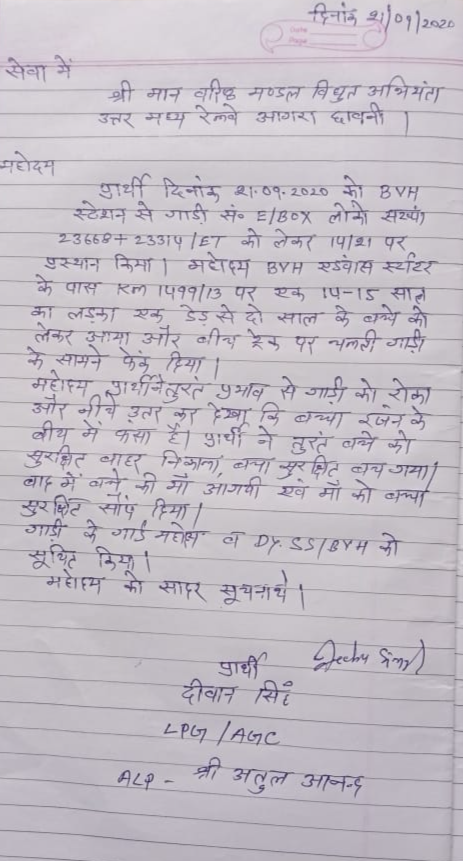 दिनांक 21/09/2020
सेवा में
श्री मान वरिष्ठ मण्डल विद्युत अभियंता
उत्तर मध्य रेलवे आगरा छावनी |
महोदय
प्रार्थी दिनांक 21.09.2020 को BVH
स्टेशन से गाडी सं० E/BOX लोको सख्यां
23668+23314/ET को लेकर 14/21 पर
प्रस्थान किया | महोदय BVH एडवांस स्टार्टर
के पास Km 1499/13 पर एक 14-15 साल
का लडका एक डेड़ से दो साल के बच्चे को
लेकर आया और बीच ट्रेक पर चलती गाडी
के सामने फेंक दिया |
महोदय प्रार्थी ने तुरत प्रभाव से गाडी को रोका
और नीचे उतर कर देखा कि बच्चा इंजन के
बीच में फसा है। प्रार्थी ने तुरंत बच्चे को
सुरक्षित बाहर निकाला, बच्चा सुरक्षित बच गया|
बाद में बच्चे की माँ आगयी एवं माँ को बच्चा
सुरक्षित सौंप दिया |
गाडी के गार्ड महोदय व Dy.SS/BVH को
सूचित किया |
महोदय को सादर सूचनार्थ |
प्रार्थी
दीवान सिंह
LPG/AGC
ALP - श्री अतुल आनन्द